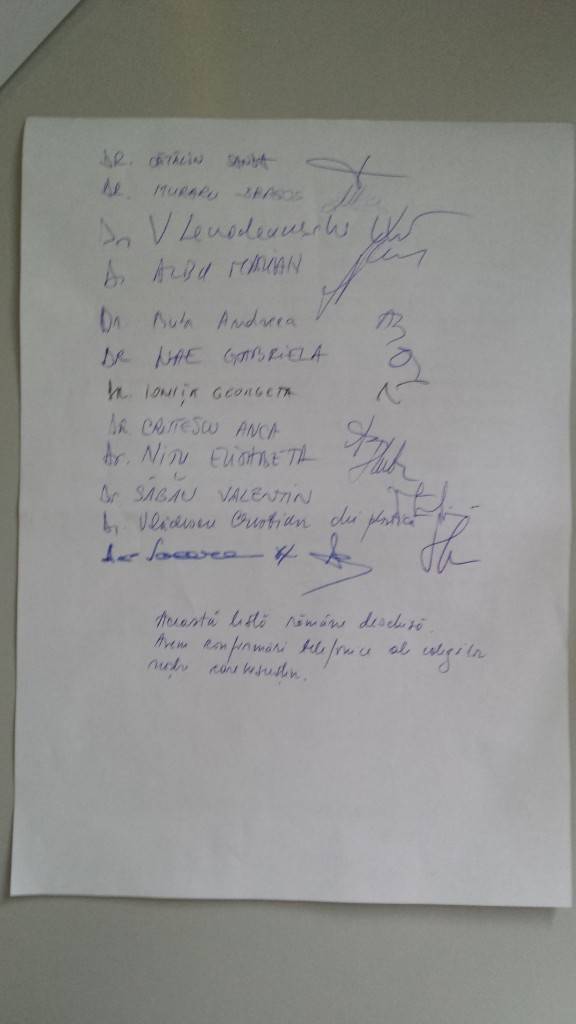 DR. CĂTĂLIN SANDA
DR. MURARU DRAGOȘ
Dr V
Dr ALBU MARIAN
Dr. Buta Andreea
DR NAE GABRIELA
Dr. IONIȚĂ GEORGETA
DR. CRISTESCU ANCA
Dr. NIȚU ELISABETA
Dr SĂBĂU VALENTIN
Dr. Vlădescu Cristian chir plastică
Această listă rămâne deschisă.
Avem confirmări telefonice ale colegilor
noștri care susțin.